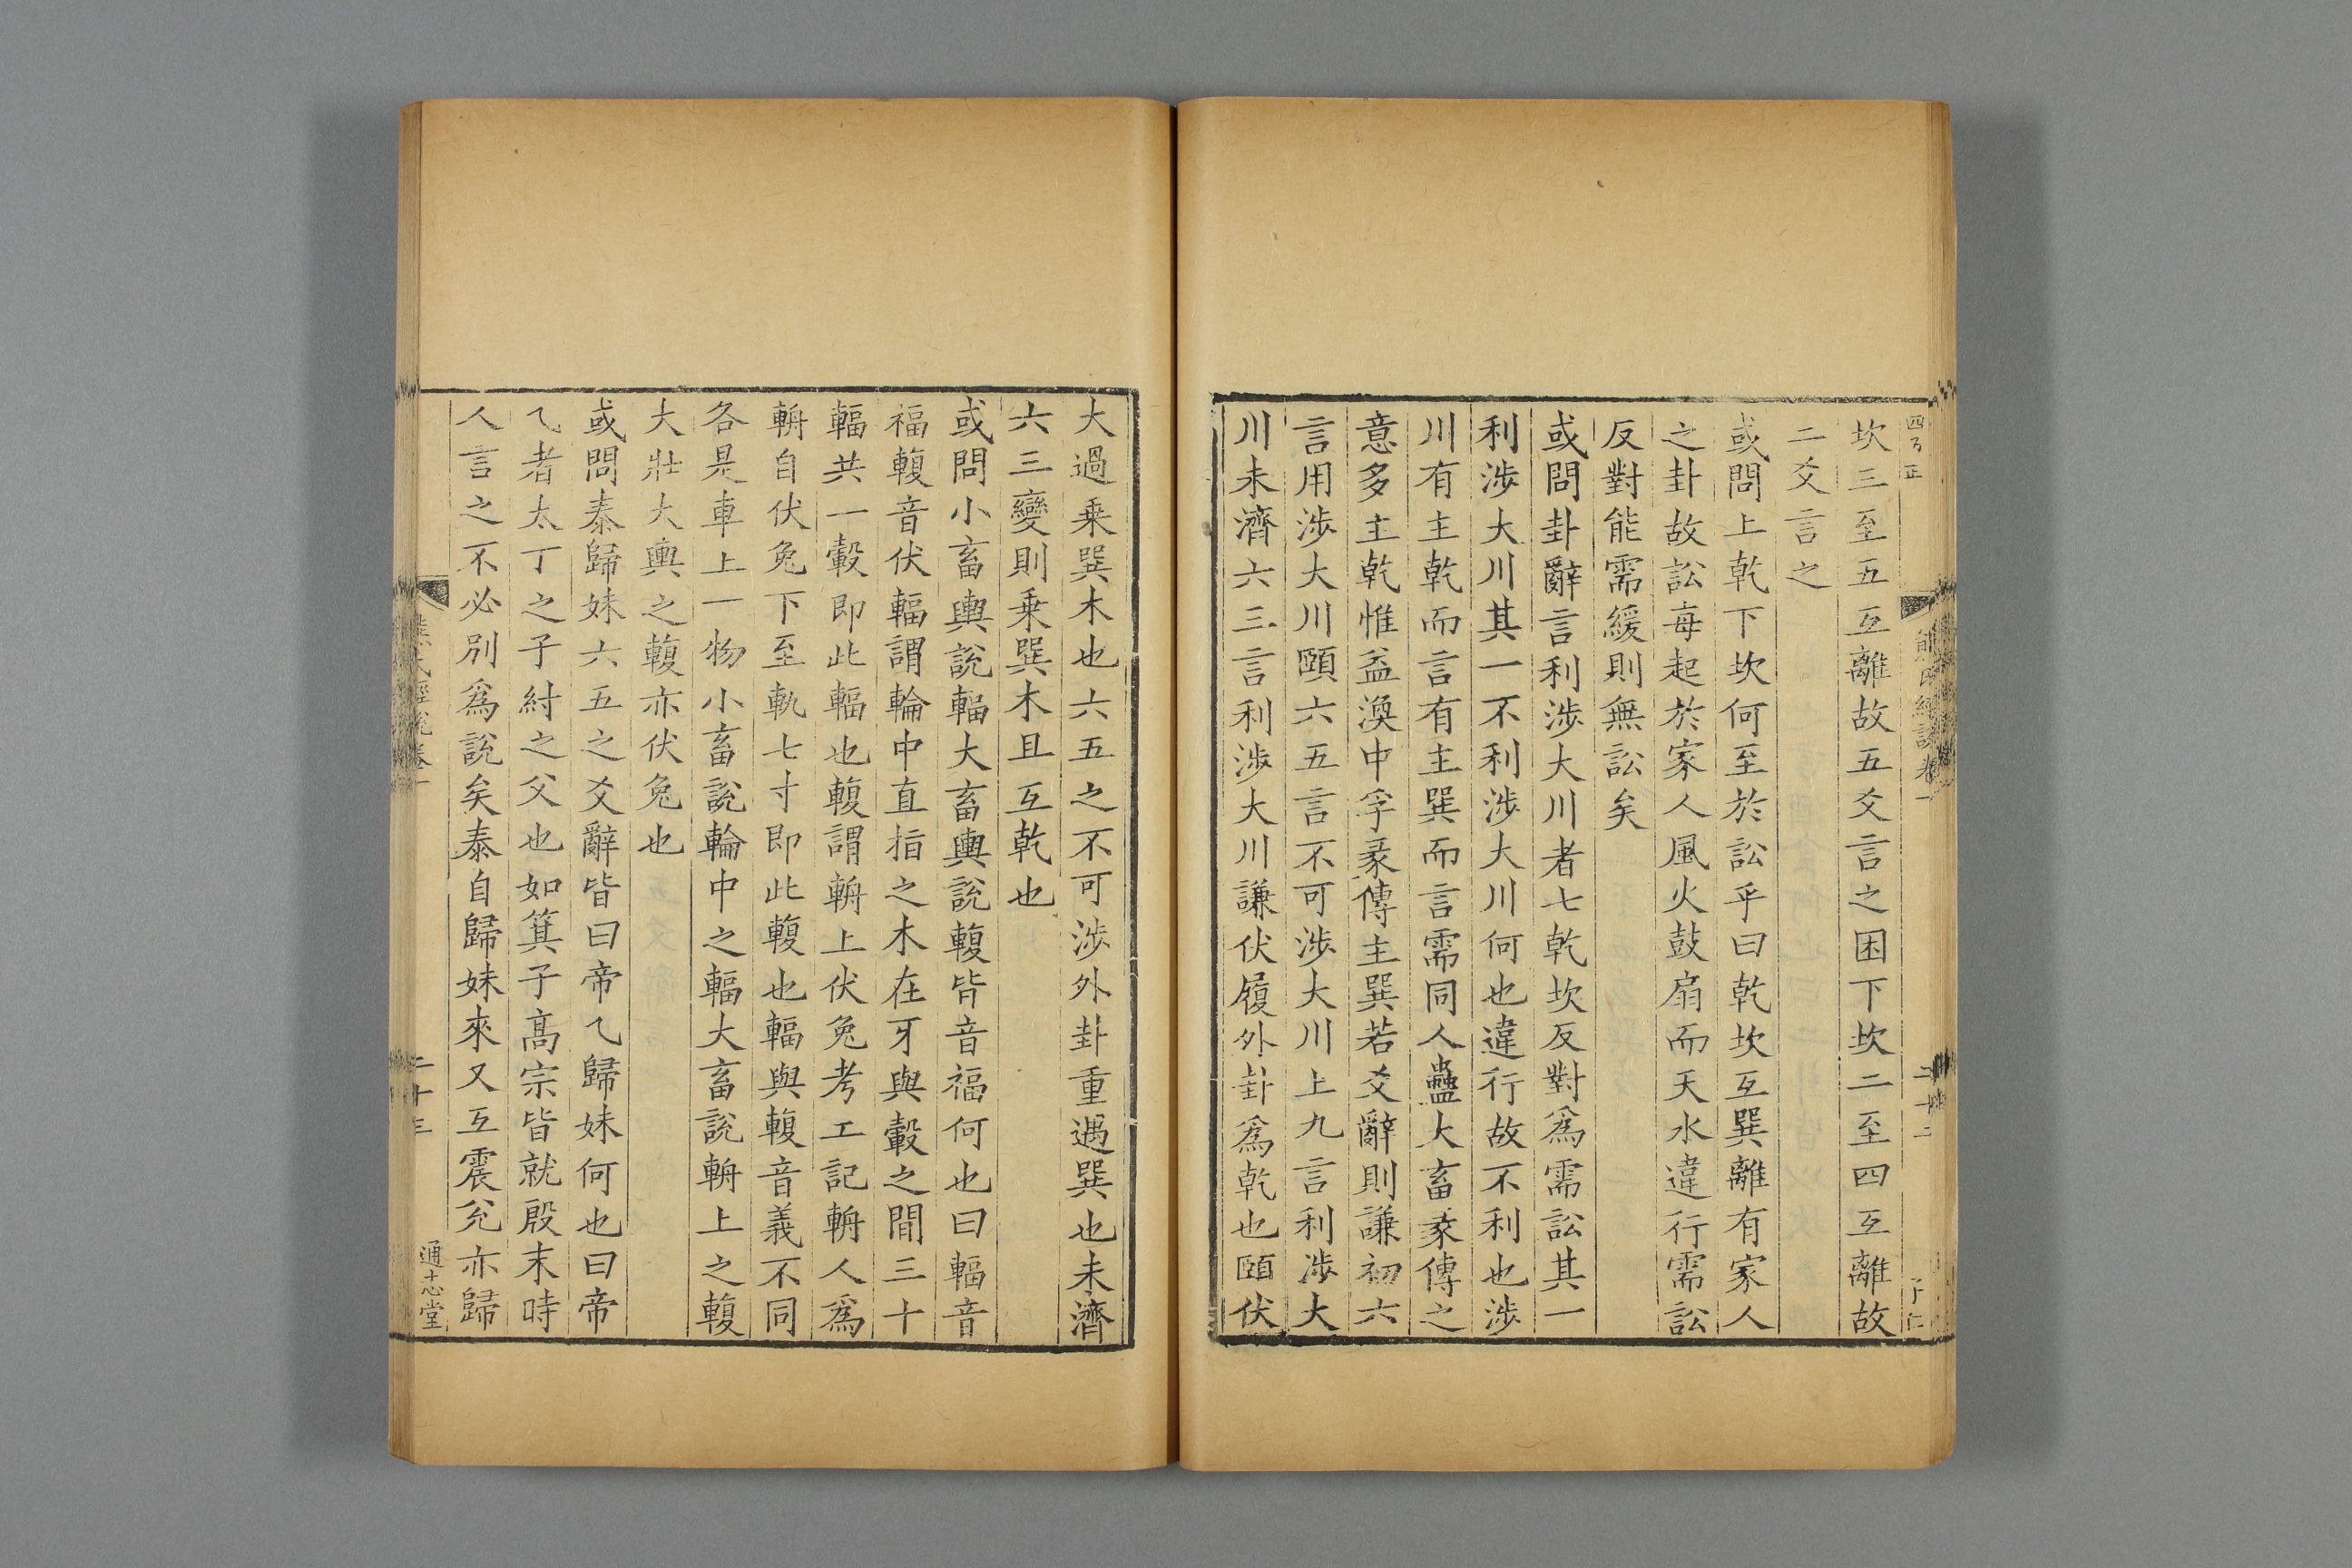 熊氏經說卷一
坎三至五互離故五爻言之困下坎二至四互離故
二爻言之
或問上乾下坎何至於訟乎曰乾坎互巽離有家人
之卦故訟每起於家人風火鼓扇而天水違行需訟
反對能需緩則無訟矣
或問卦辭言利涉大川者七乾坎反對爲需訟其一
利涉大川其一不利涉大川何也違行故不利也涉
川有主乾而言有主巽而言需同人蠱大畜彖傳之
意多主乾惟益渙中孚彖傳主巽若爻辭則謙初六
言用涉大川頤六五言不可涉大川上九言利涉大
川未濟六三言利涉大川謙伏履外卦爲乾也頤伏
大過乗巽木也六五之不可涉外卦重遇巽也未濟
六三變則乗巽木且互乾也
或問小畜輿說輻大畜輿說輹皆音福何也曰輻音
福輹音伏輻謂輪中直指之木在牙與轂之間三十
輻共一轂即此輻也輹謂輈上伏兔考工記輈人爲
輈自伏兔下至軌七寸即此輹也輻與輹音義不同
各是車上一物小畜說輪中之輻大畜說輈上之輹
大壯大輿之輹亦伏兔也
或問泰歸妹六五之爻辭皆曰帝乀歸妹何也曰帝
乀者太丁之子紂之父也如箕子髙宗皆就殷末時
人言之不必別爲說矣泰自歸妹來又互震兊亦歸
熊氏經說卷一
二十三
通志堂